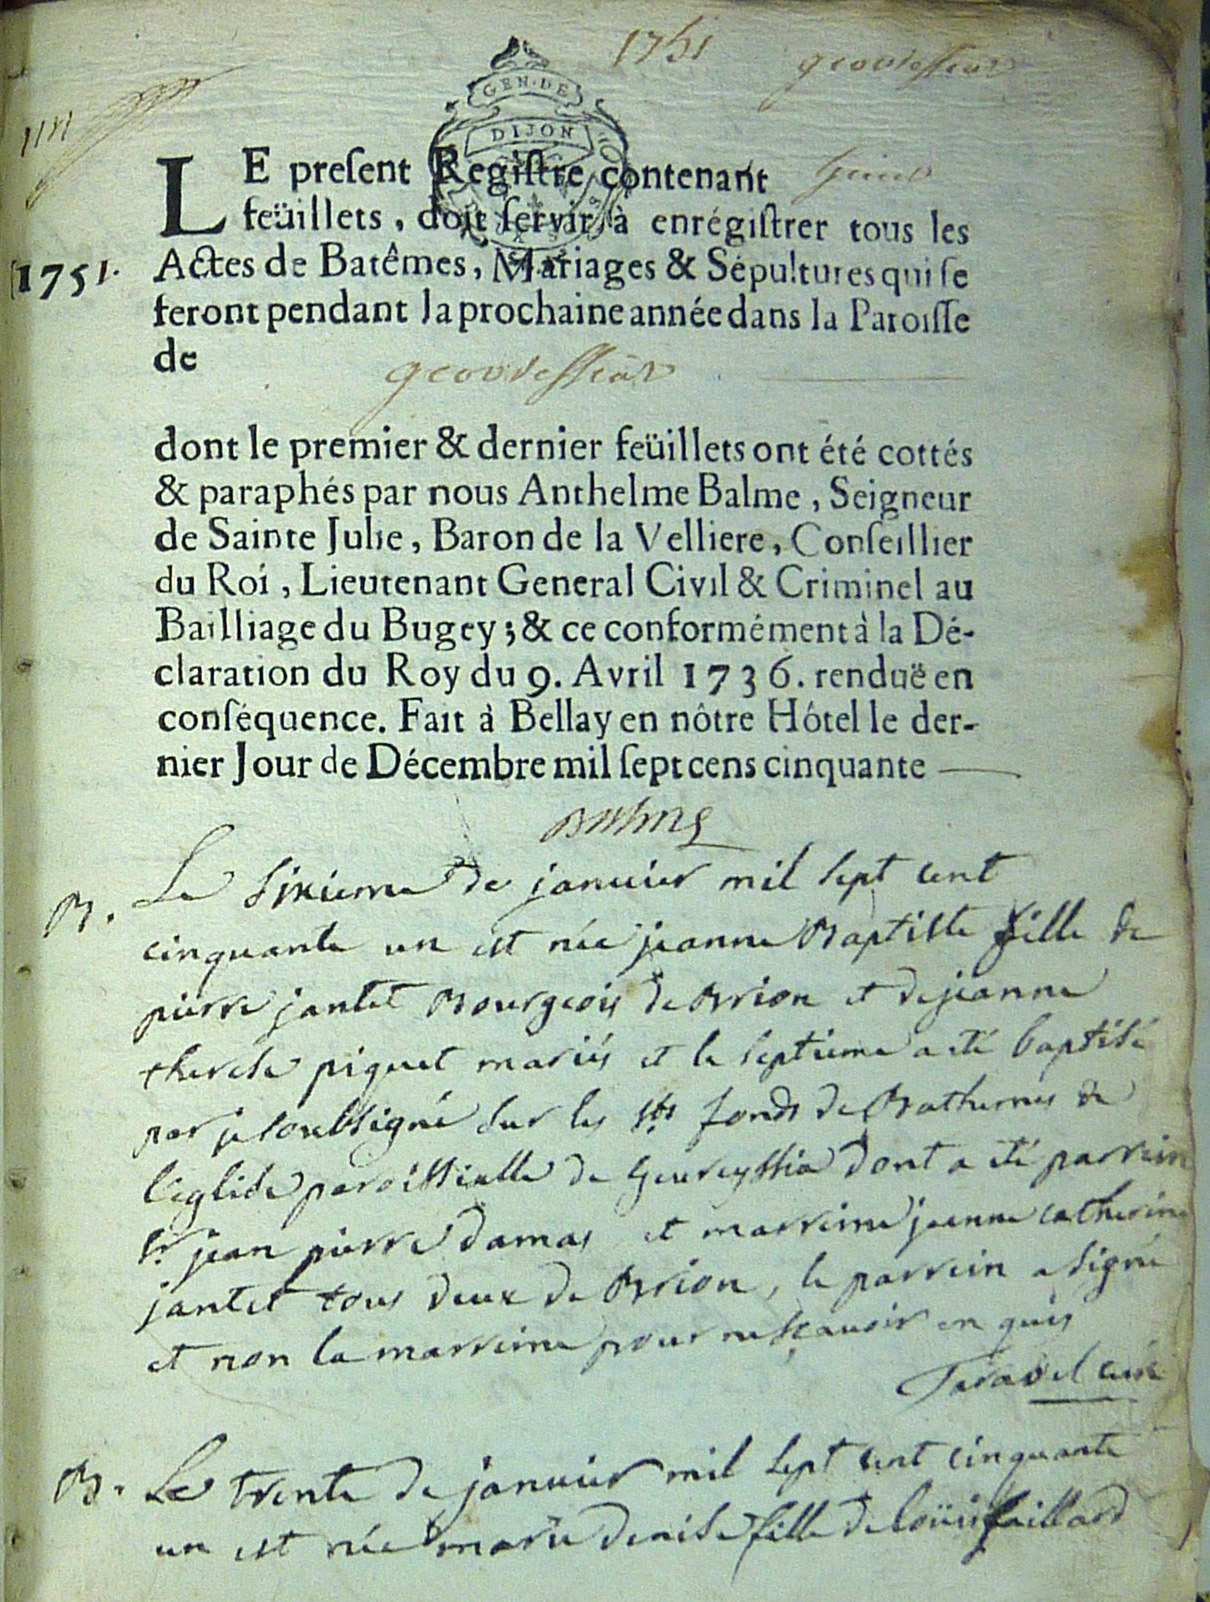 1751
geovresseiat
GEN. DE
DIJON
LE preſent Regiſtre contenant huit
feüillets, doit ſervir à enrégiſtrer tous les
1751.
Actes de Batêmes, Mariages & Sépultures qui ſe
feront pendant la prochaine année dans la Paroiſſe
de geovresseiat
dont le premier & dernier feüillets ont été cottés
& paraphés par nous Anthelme Balme, Seigneur
de Sainte Julie, Baron de la Velliere, Conſeillier
du Roi, Lieutenant General Civil & Criminel au
Bailliage du Bugey; & ce conformément à la Dé-
claration du Roy du 9. Avril 1736. renduë en
conſéquence. Fait à Bellay en nôtre Hôtel le der-
nier Jour de Décembre mil ſept cens cinquante
Balme
B. Le sixieme de janvier mil sept cent
cinquante un est née jeanne Baptiste fille de
pierre jantet Bourgeois de Brion et de jeanne
therese piquet mariés et le septieme a eté baptisé
par je soubsigné sur les sts fonds de Bathemes de
l'eglise paroissialle de Geureyssia dont a eté parrein
sr jean pierre damas et marreine jeanne catherine
jantet tous deux de Brion, le parrein a signé
et non la marreine pour ne sçavoir en quis
Taravel curé
B. Le trente de janvier mil sept cent cinquante
un est née marie denise fille de loüis faillard